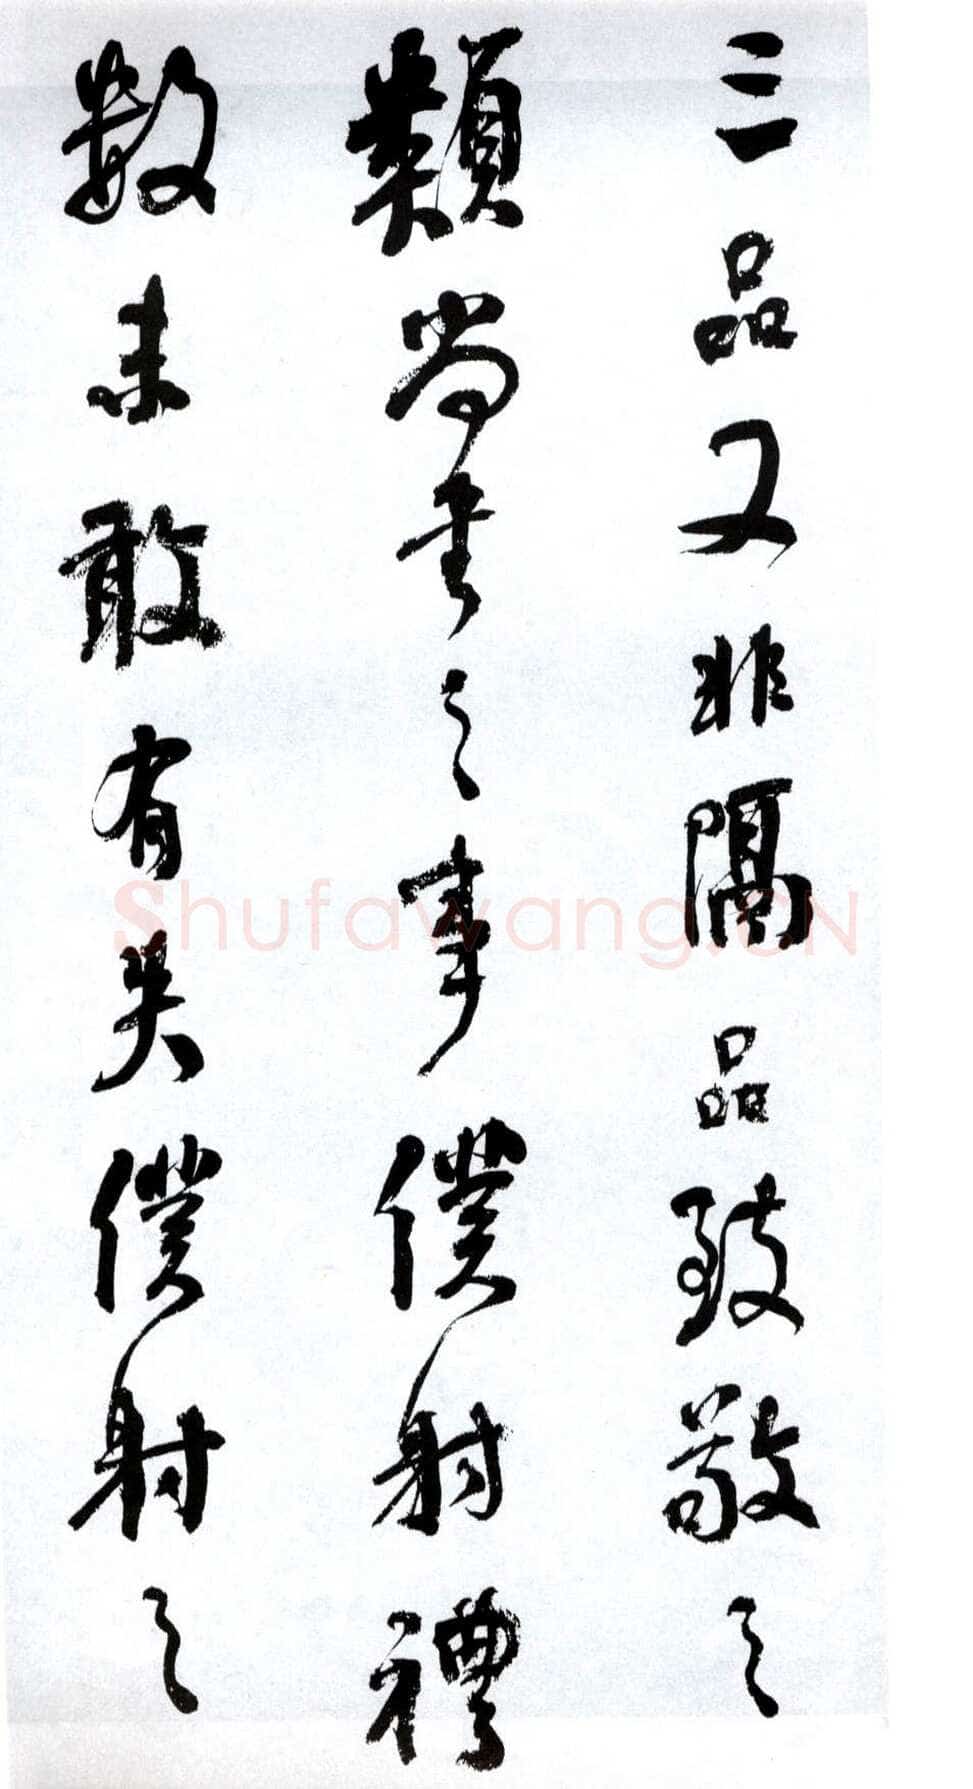 三品又非隔品致敬之
類尚書之事僕射禮
數未敢有失僕射之
Shufawang.CN